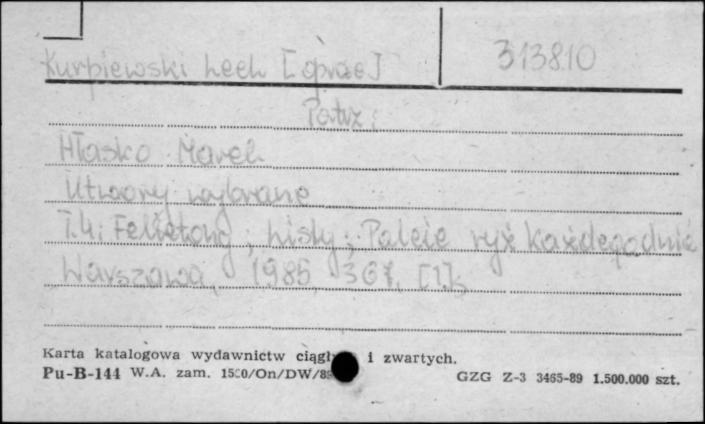 Kurpiewski Lech [oprac] 313810
Patrz:
Hłasko Marek
Utwory wybrane
T.4: Felietony; Listy; Palcie ryż każdego dnia
Warszawa, 1985,
Karta katalogowa wydawnictw i zwartych.
Pu-B-144 W.A. zam. GZG Z-3 3465-89 1.500.000 szt.